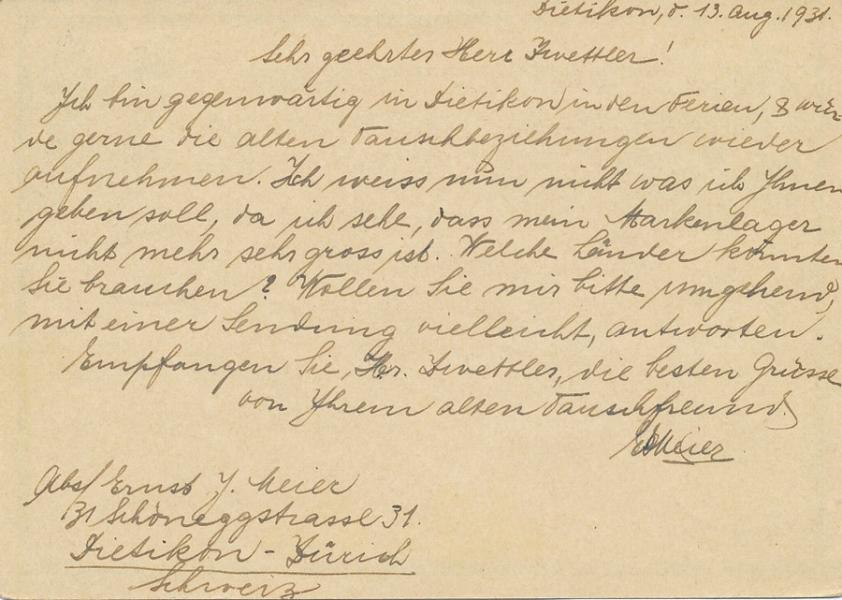 Dietikon, d. 13. Aug. 1931.
Sehr geehrter Herr Zwettler!
Ich bin gegenwärtig in Dietikon in den Ferien, & wür-
de gerne die alten Tauschbeziehungen wieder
aufnehmen. Ich weiss nun nicht was ich Ihnen
geben soll, da ich sehe, dass mein Markenlager
nicht mehr sehr gross ist. Welche Länder könnten
Sie brauchen? Wollen Sie mir bitte umgehend,
mit einer Sendung vielleicht, antworten.
Empfangen Sie, Hr. Zwettler, die besten Grüsse
von Ihrem alten Tauschfreund
EMeier
Abs/ Ernst J. Meier
Schöneggstrasse 31.
Dietikon - Zürich
Schweiz